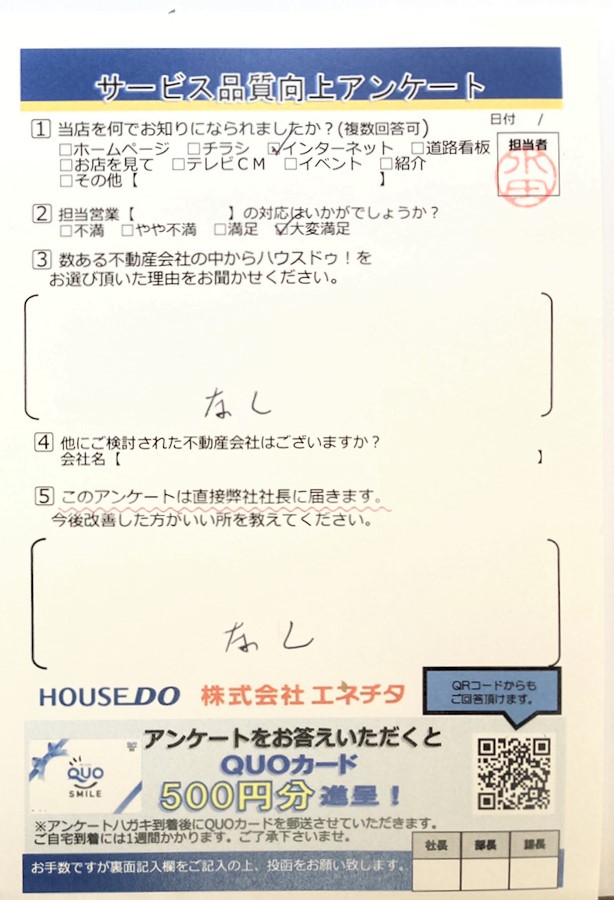 サービス品質向上アンケート
日付 /
1 当店を何でお知りになられましたか？(複数回答可)
□ホームページ □チラシ ☑インターネット □道路看板
□お店を見て □テレビCM □イベント □紹介
□その他【 】
担当者
2 担当営業【 】の対応はいかがでしょうか？
□不満 □やや不満 □満足 ☑大変満足
3 数ある不動産会社の中からハウスドゥ！を
お選び頂いた理由をお聞かせください。
なし
4 他にご検討された不動産会社はございますか？
会社名【 】
5 このアンケートは直接弊社社長に届きます。
今後改善した方がいい所を教えてください。
なし
HOUSEDO 株式会社 エネチタ
QRコードからも
ご回答頂けます。
アンケートをお答えいただくと
QUOカード
500円分進呈！
QUO
SMILE
※アンケートハガキ到着後にQUOカードを郵送させていただきます。
ご自宅到着には1週間かかります。ご了承下さいませ。
お手数ですが裏面記入欄をご記入の上、投函をお願い致します。
社長 部長 課長